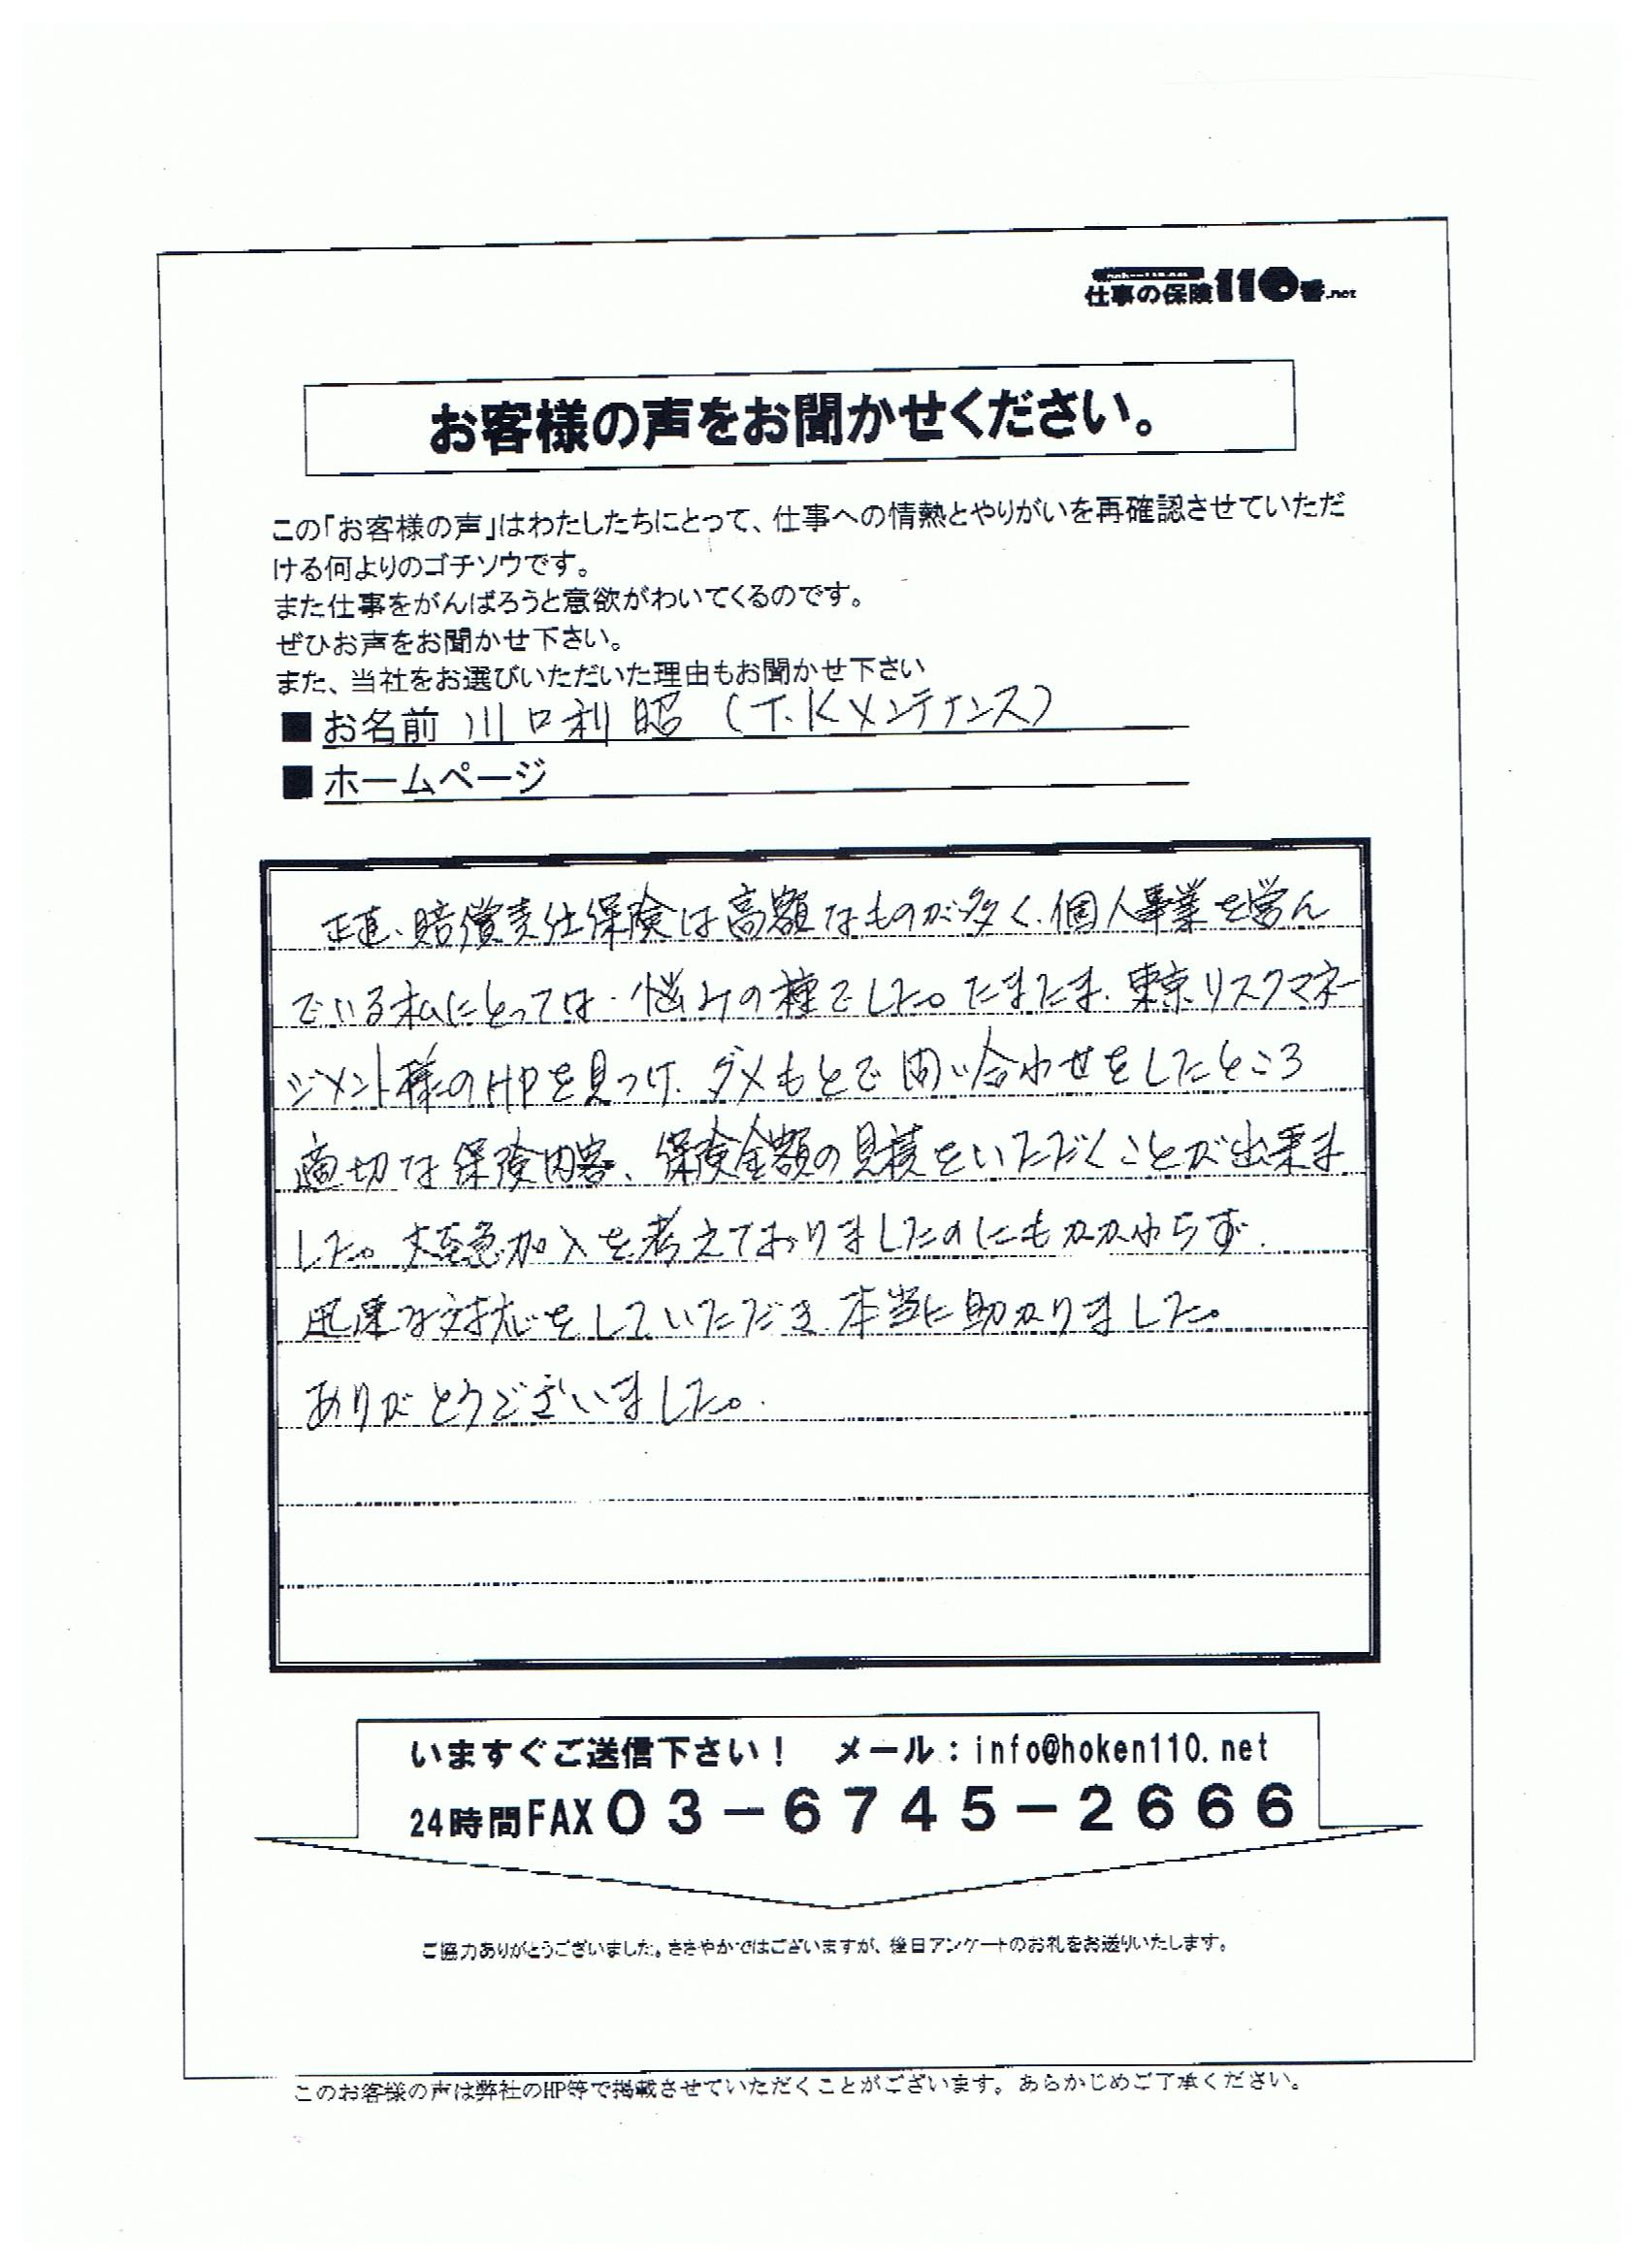 仕事の保険110番.net
お客様の声をお聞かせください。
この「お客様の声」はわたしたちにとって、仕事への情熱とやりがいを再確認させていただ
ける何よりのゴチソウです。
また仕事をがんばろうと意欲がわいてくるのです。
ぜひお声をお聞かせ下さい。
また、当社をお選びいただいた理由もお聞かせ下さい
■お名前 川口利昭 (T.Kメンテナンス)
■ホームページ
正直、賠償責任保険は高額なものが多く、個人事業を営ん
でいる私にとっては、悩みの種でした。たまたま、東京リスクマネー
ジメント様のHPを見つけ、ダメもとで問い合わせをしたところ
適切な保険内容、保険金額の見積をいただくことが出来ま
した。大至急加入を考えておりましたのにもかかわらず、
迅速な対応をしていただき、本当に助かりました。
ありがとうございました。
いますぐご送信下さい! メール:info@hoken110.net
24時間FAX03-6745-2666
ご協力ありがとうございました。ささやかではございますが、後日アンケートのお礼をお送りいたします。
このお客様の声は弊社のHP等で掲載させていただくことがございます。あらかじめご了承ください。